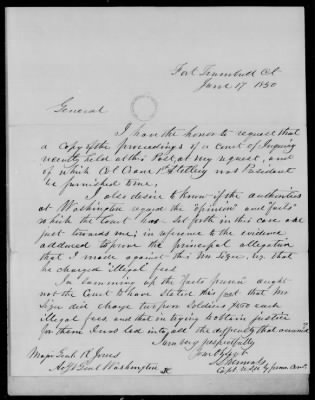 Fort Trumbull Ct
June 17 1850
General
I have the honor to request that
a copy of the proceedings of a court of Inquiry
recently held at this Post, at my request, and
of which Col Crane 1st Artillery was President
be furnished to me,
I also desire to know if the authorities
at Washington regard the "opinion" and "facts"
which the Court has set forth in this case as
just towards me; in reference to the evidence
adduced to prove the principal allegation
that I made against this Mr. viz, that
he charged illegal fees
In summing up the "facts proven" ought
not the Court to have stated this fact that Mr
did charge two poor soldiers two each
illegal fees and that in trying to obtain justice
for them I was led into, all the difficulty that
I am very respectfully
Your Obt Svt
Major Genl R Jones
Adjt Genl Washington
Capt